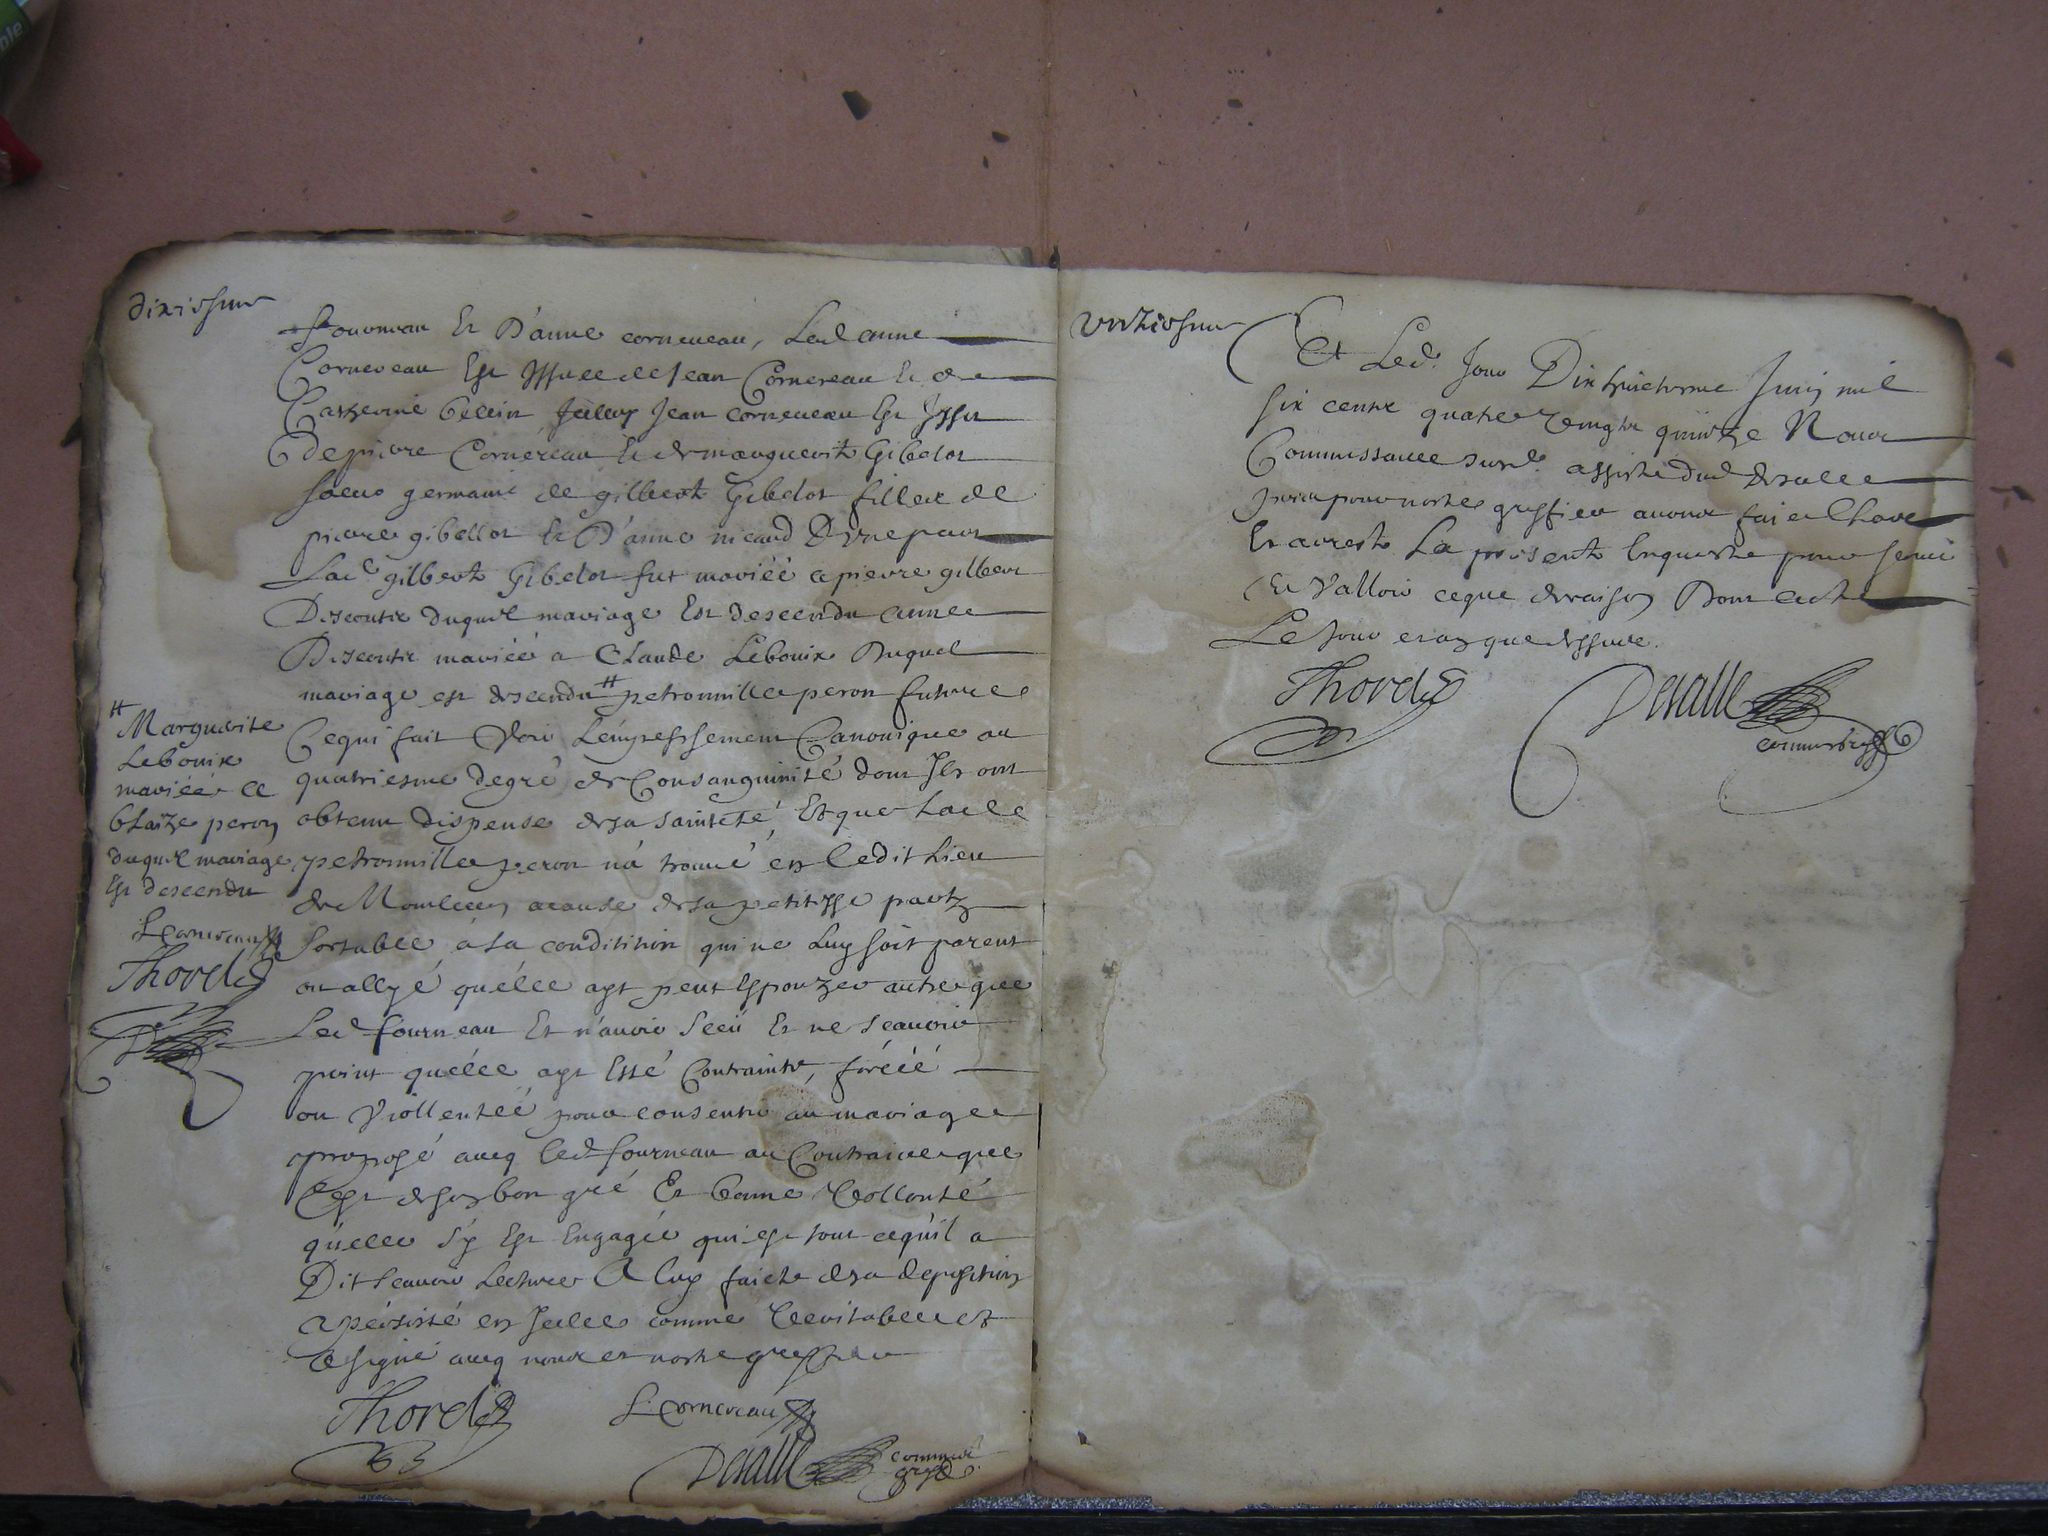 dixiesme
fourneau Et D'anne corneveau, Lad anne
Corneveau Est Issuee de Jean Corneveau Et de
Catherine bellin Icelluy Jean corneveau Est Issu
de pierre Corneveau Et de marguerite Gibelot
soeur germaine de gilberte Gibelot filles de
pierre gibellot Et D'anne nicaud D'une part
Lad gilberte Gibelot fut mariéé a pierre gilbert
Descoutis duquel mariage Est descendu annee
Descoutis mariéé a Claude Lebouix Duquel
mariage est descendu # petronnille peron future
Cequi fait Voir L'empeschement Canonique au
quatriesme degré de Consanguinité dont Ils ont
obtenu dispense de sa sainteté, Et que lad
petronnille peron n'a trouvé en ledit Lieu
de acause de sa petitesse partz
Sortable a sa conditition qui ne Luy soit parent
ou allyé qu'elle ayt peut Espouzer autre que
Led fourneau Et n'avoir sceü Et ne scavoir
point qu'elle ayt Esté Contrainte, forcéé
ou Viollentéé pour consentir au mariage
proposé avecq led fourneau au Contraire que
C'est de son bon gré Et bonne Vollonté
qu'elle s'y Est Engagée qui est tout cequ'il a
Dit scavoir Lecture A luy faicte de sa deposition
a persisté en Icelle comme Veritable et
a signé avecq nous et nostre greffier
Thoret
Corneveau
Desalle commis greff
# Marguerite
Lebouix
mariéé a
blaize peron
duquel mariage
Est descendu
Corneveau
Thoret
unziesme
Et Led. Jour Dix huictiesme Juin mil
six centz quatre vingtz quinze Nous
Commissaire susd. assisté dud desalle
pour nostre greffier avons faict clore
Et arresté La presente Enqueste pour servir
Et Valloir ceque de raison Dont acte
Le Jour et an que dessus.
Thoret
Desalle
commis greff